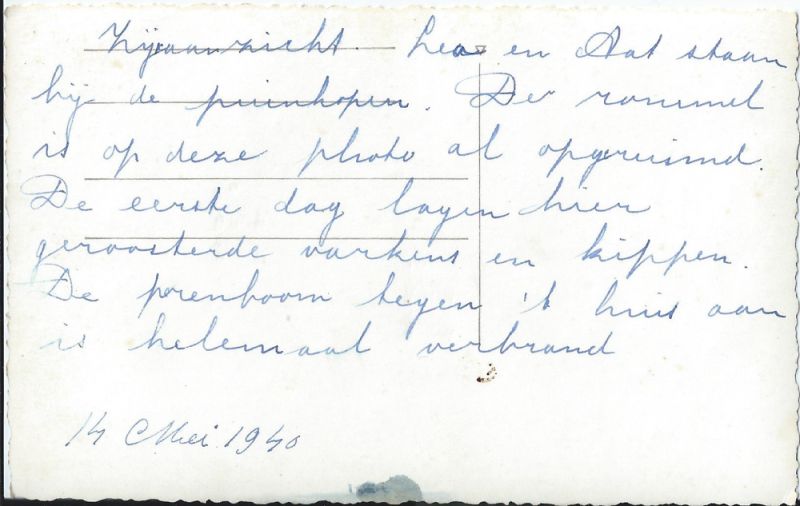 Zijaanzicht. Lea en Aat staan
bij de puinhopen. De rommel
is op deze photo al opgeruimd.
De eerste dag lagen hier
geroosterde varkens en kippen.
De perenboom tegen 't huis aan
is helemaal verbrand
14 Mei 1940